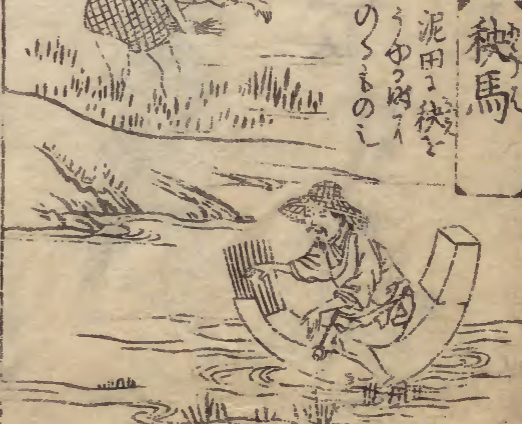 秧馬
泥田に秧を
うゆる時に
のるもの也